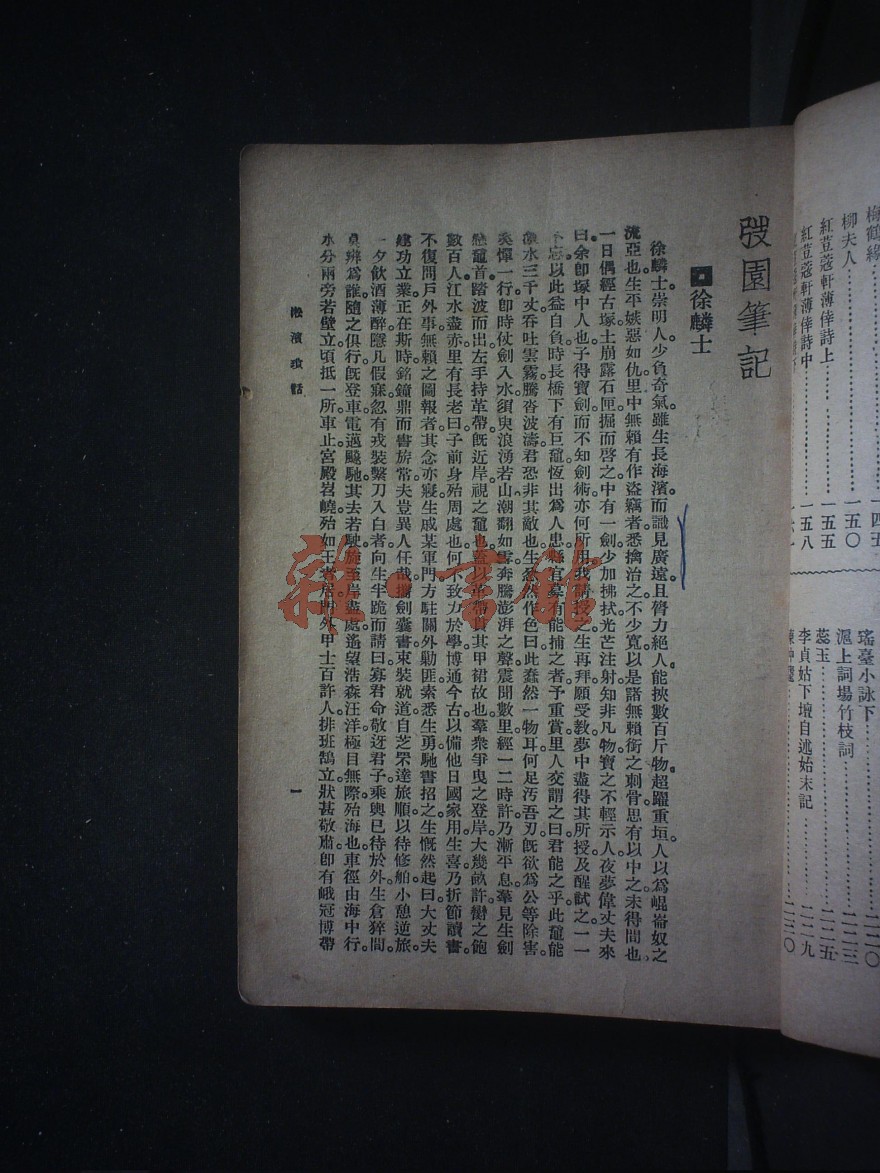 梅鶴緣 一四五
柳夫人 一五〇
紅荳蔻軒薄倖詩上 一五五
紅荳蔻軒薄倖詩中 一五八
瑤臺小詠下 二二〇
滬上詞場竹枝詞 二二三
蕊玉 二二五
李貞姑下壇自述始末記 二二九
二三〇
弢園筆記
徐麟士
徐麟士崇明人少負奇氣。雖生長海濱而識見廣遠且膂力絕人能挾數百斤物。超躍重垣人以爲崐崙奴之
流亞也生平嫉惡如仇里中無賴有作盜竊者悉擒治之不少寬以是諸無賴銜之刺骨思有以中之未得間也。
一日偶經古塚土崩露石匣掘而啓之中有一劍少加拂拭光芒注射知非凡物寶之不輕示人夜夢偉丈夫來
曰余卽塚中人也子得寶劍而不知劍術亦何所用我請授之生再拜願受敎夢中盡得其所授及醒試之一一
不忘以此益自負時長橋下有巨黿恆出爲人患縣有募有能捕之者予重賞里人交謂之曰君能之乎此黿能
激水三千丈吞吐雲霧騰沓波濤君恐非其敵也生忿然作色曰此蠢然一物耳何足汚吾刃旣欲爲公等除害。
奚憚一行卽時仗劍入水須臾浪湧若山潮翻如雪奔騰澎湃之聲震聞數里經一二時許乃漸平息羣見生劍
懸黿首踏波而出左手持革帶旣近岸視之黿也蓋以革帶貫其甲裙故也羣衆爭曳之登岸大幾畝許臠之飽
數百人江水盡赤里有長老曰子前身殆周處也何不致力於學博通今古以備他日國家用生喜乃折節讀書。
不復問戶外事無賴之圖報者其念亦寢生戚某軍門方駐關外勦匪索悉生勇馳書招之生慨然起曰大丈夫
建功立業正在斯時銘鐘鼎而書旂常夫豈異人任哉攜劍囊書束裝就道自芝罘達旅順以待修舶小憩逆旅。
一夕飲酒薄醉隱几假寐忽有戎裝繫刀入白者向生半跪而請曰寡君命敬迓君子乘輿已待於外生倉猝間。
莫辨爲誰隨之俱行旣登車電邁飈馳其去若駛旋至岸盡處遙望浩淼汪洋極目無際殆海也車徑由海中行。
水分兩旁若壁立頃抵一所車止宮殿岧嶢殆如王者居門外甲士百許人排班鵠立狀甚敬肅卽有峨冠博帶
淞濱瑣話
一
雜·書館